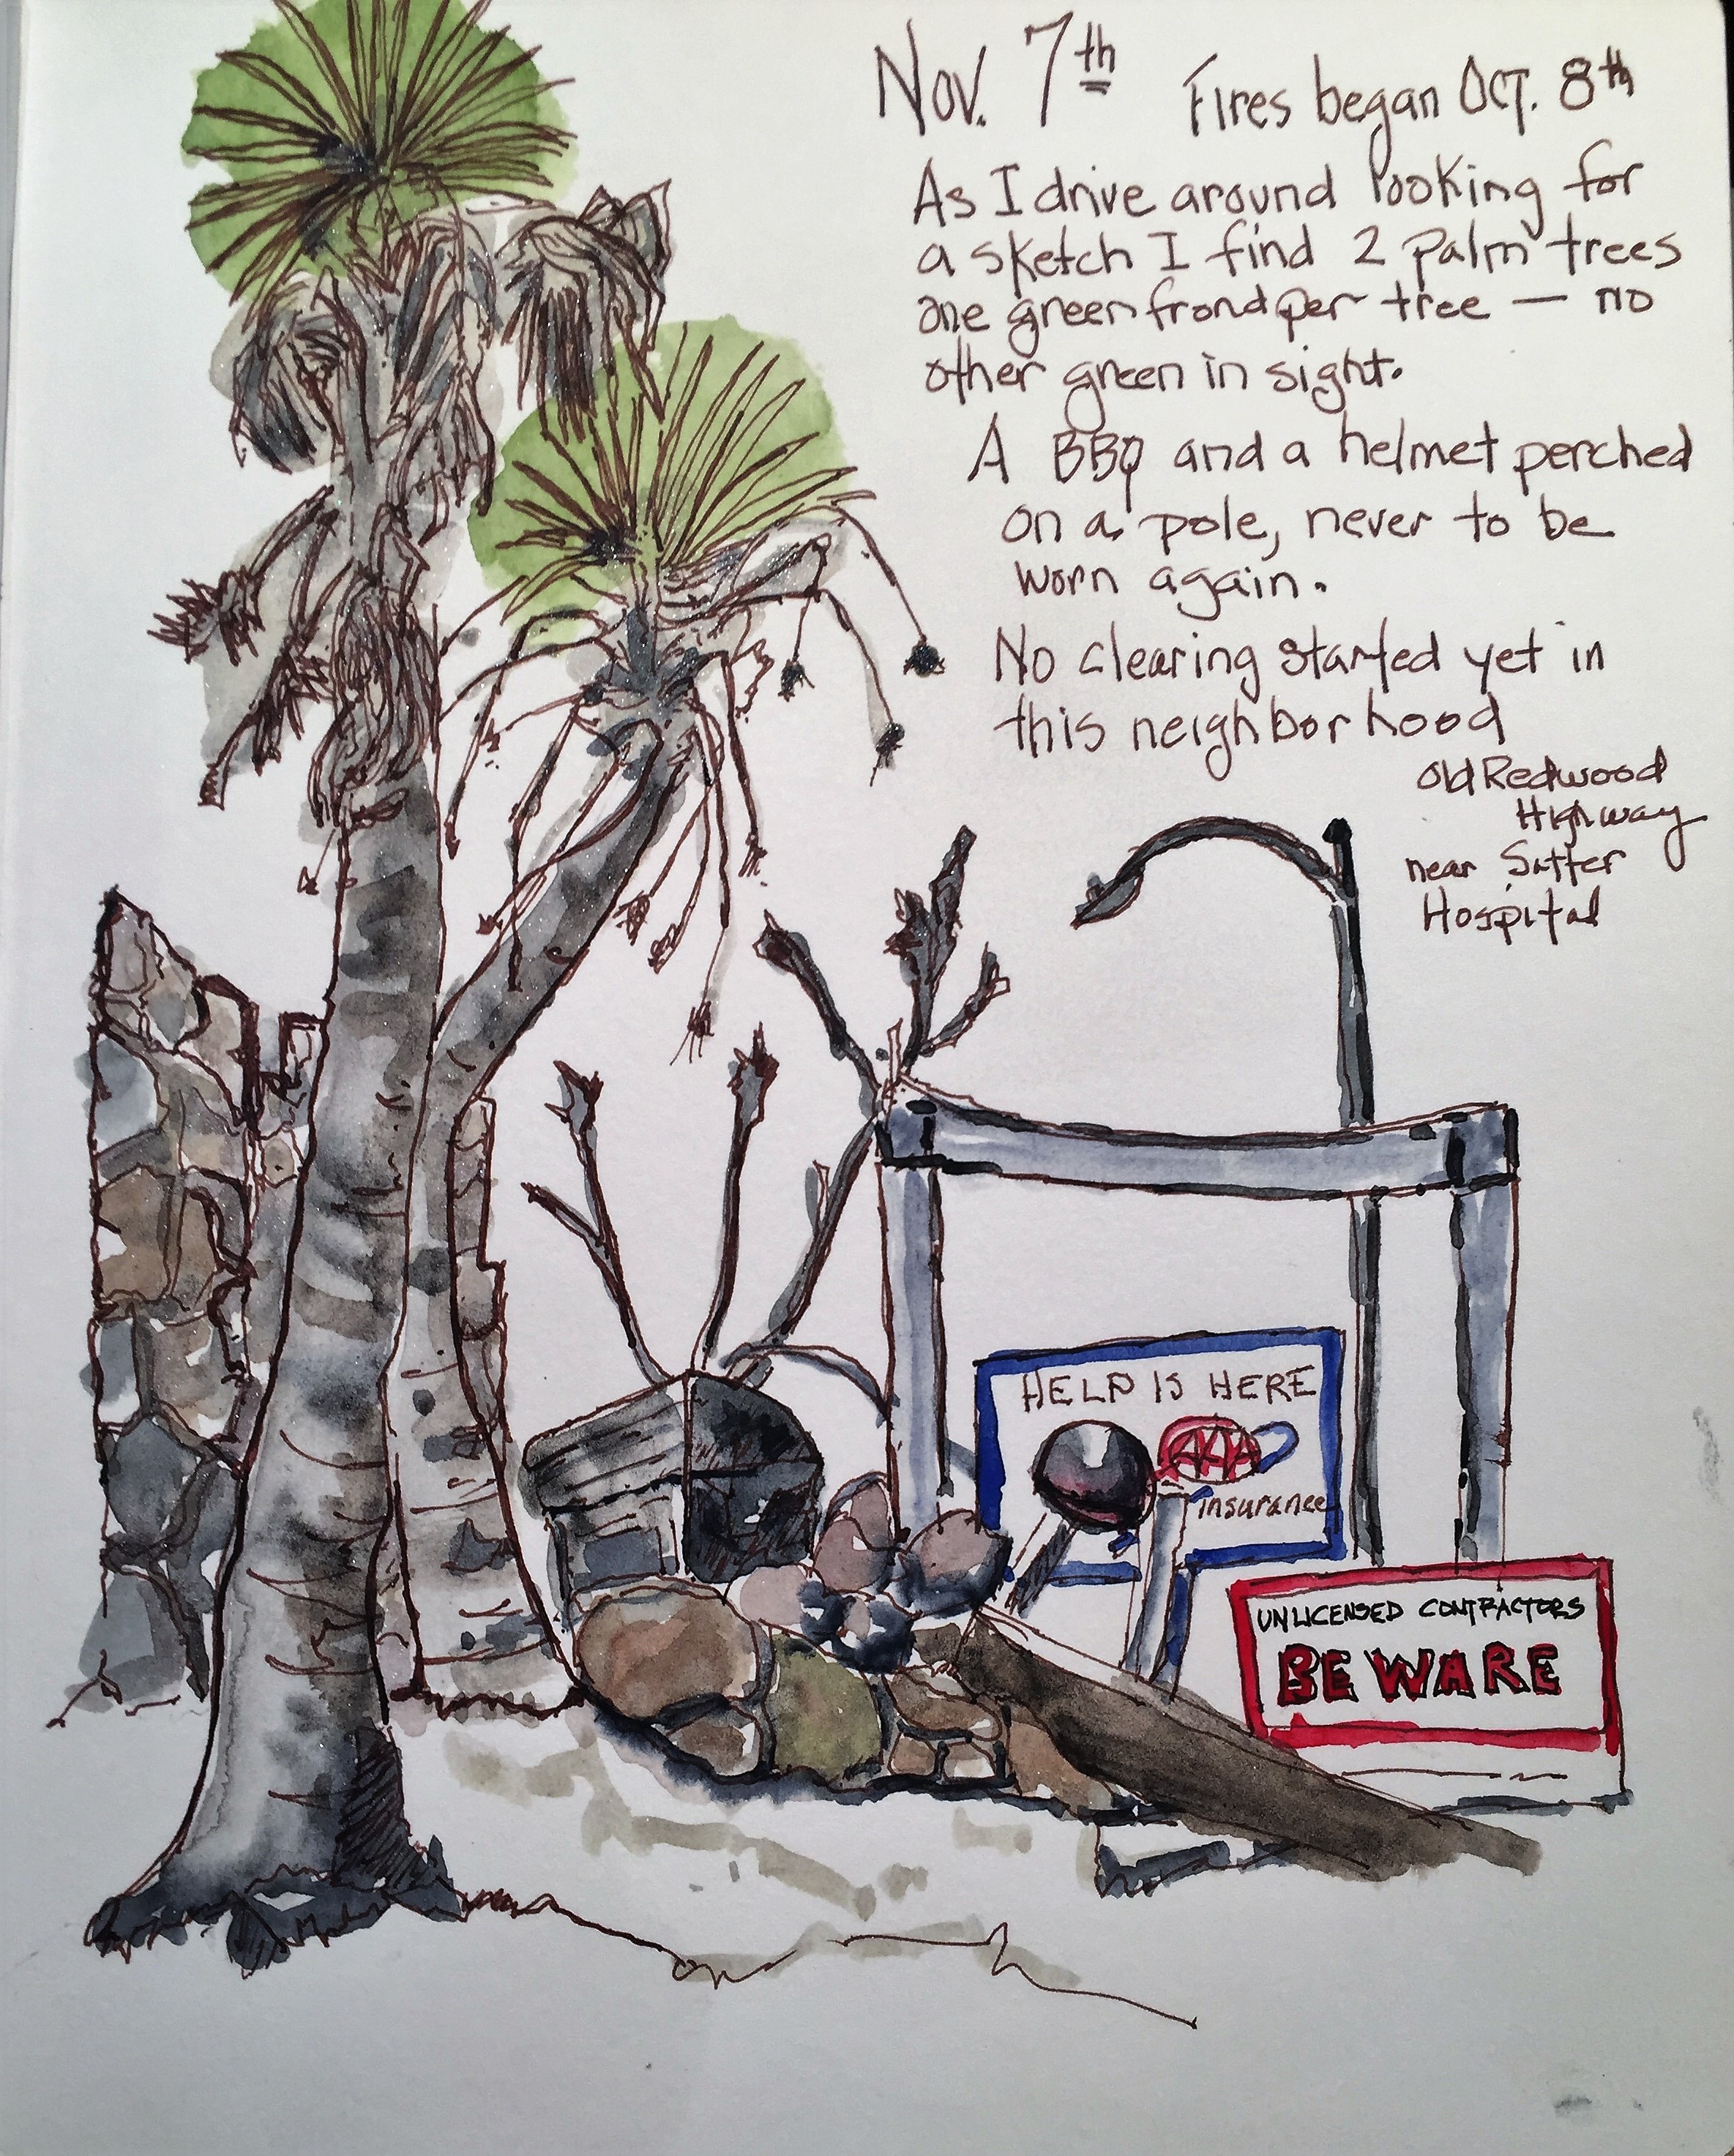 Nov. 7th Fires began Oct. 8th
As I drive around looking for
a sketch I find 2 palm trees
one green frond per tree — no
other green in sight.
A BBQ and a helmet perched
on a pole, never to be
worn again.
No clearing started yet in
this neighborhood
Old Redwood
Highway
near Sutter
Hospital
HELP IS HERE
insurance
UNLICENSED CONTRACTORS
BEWARE